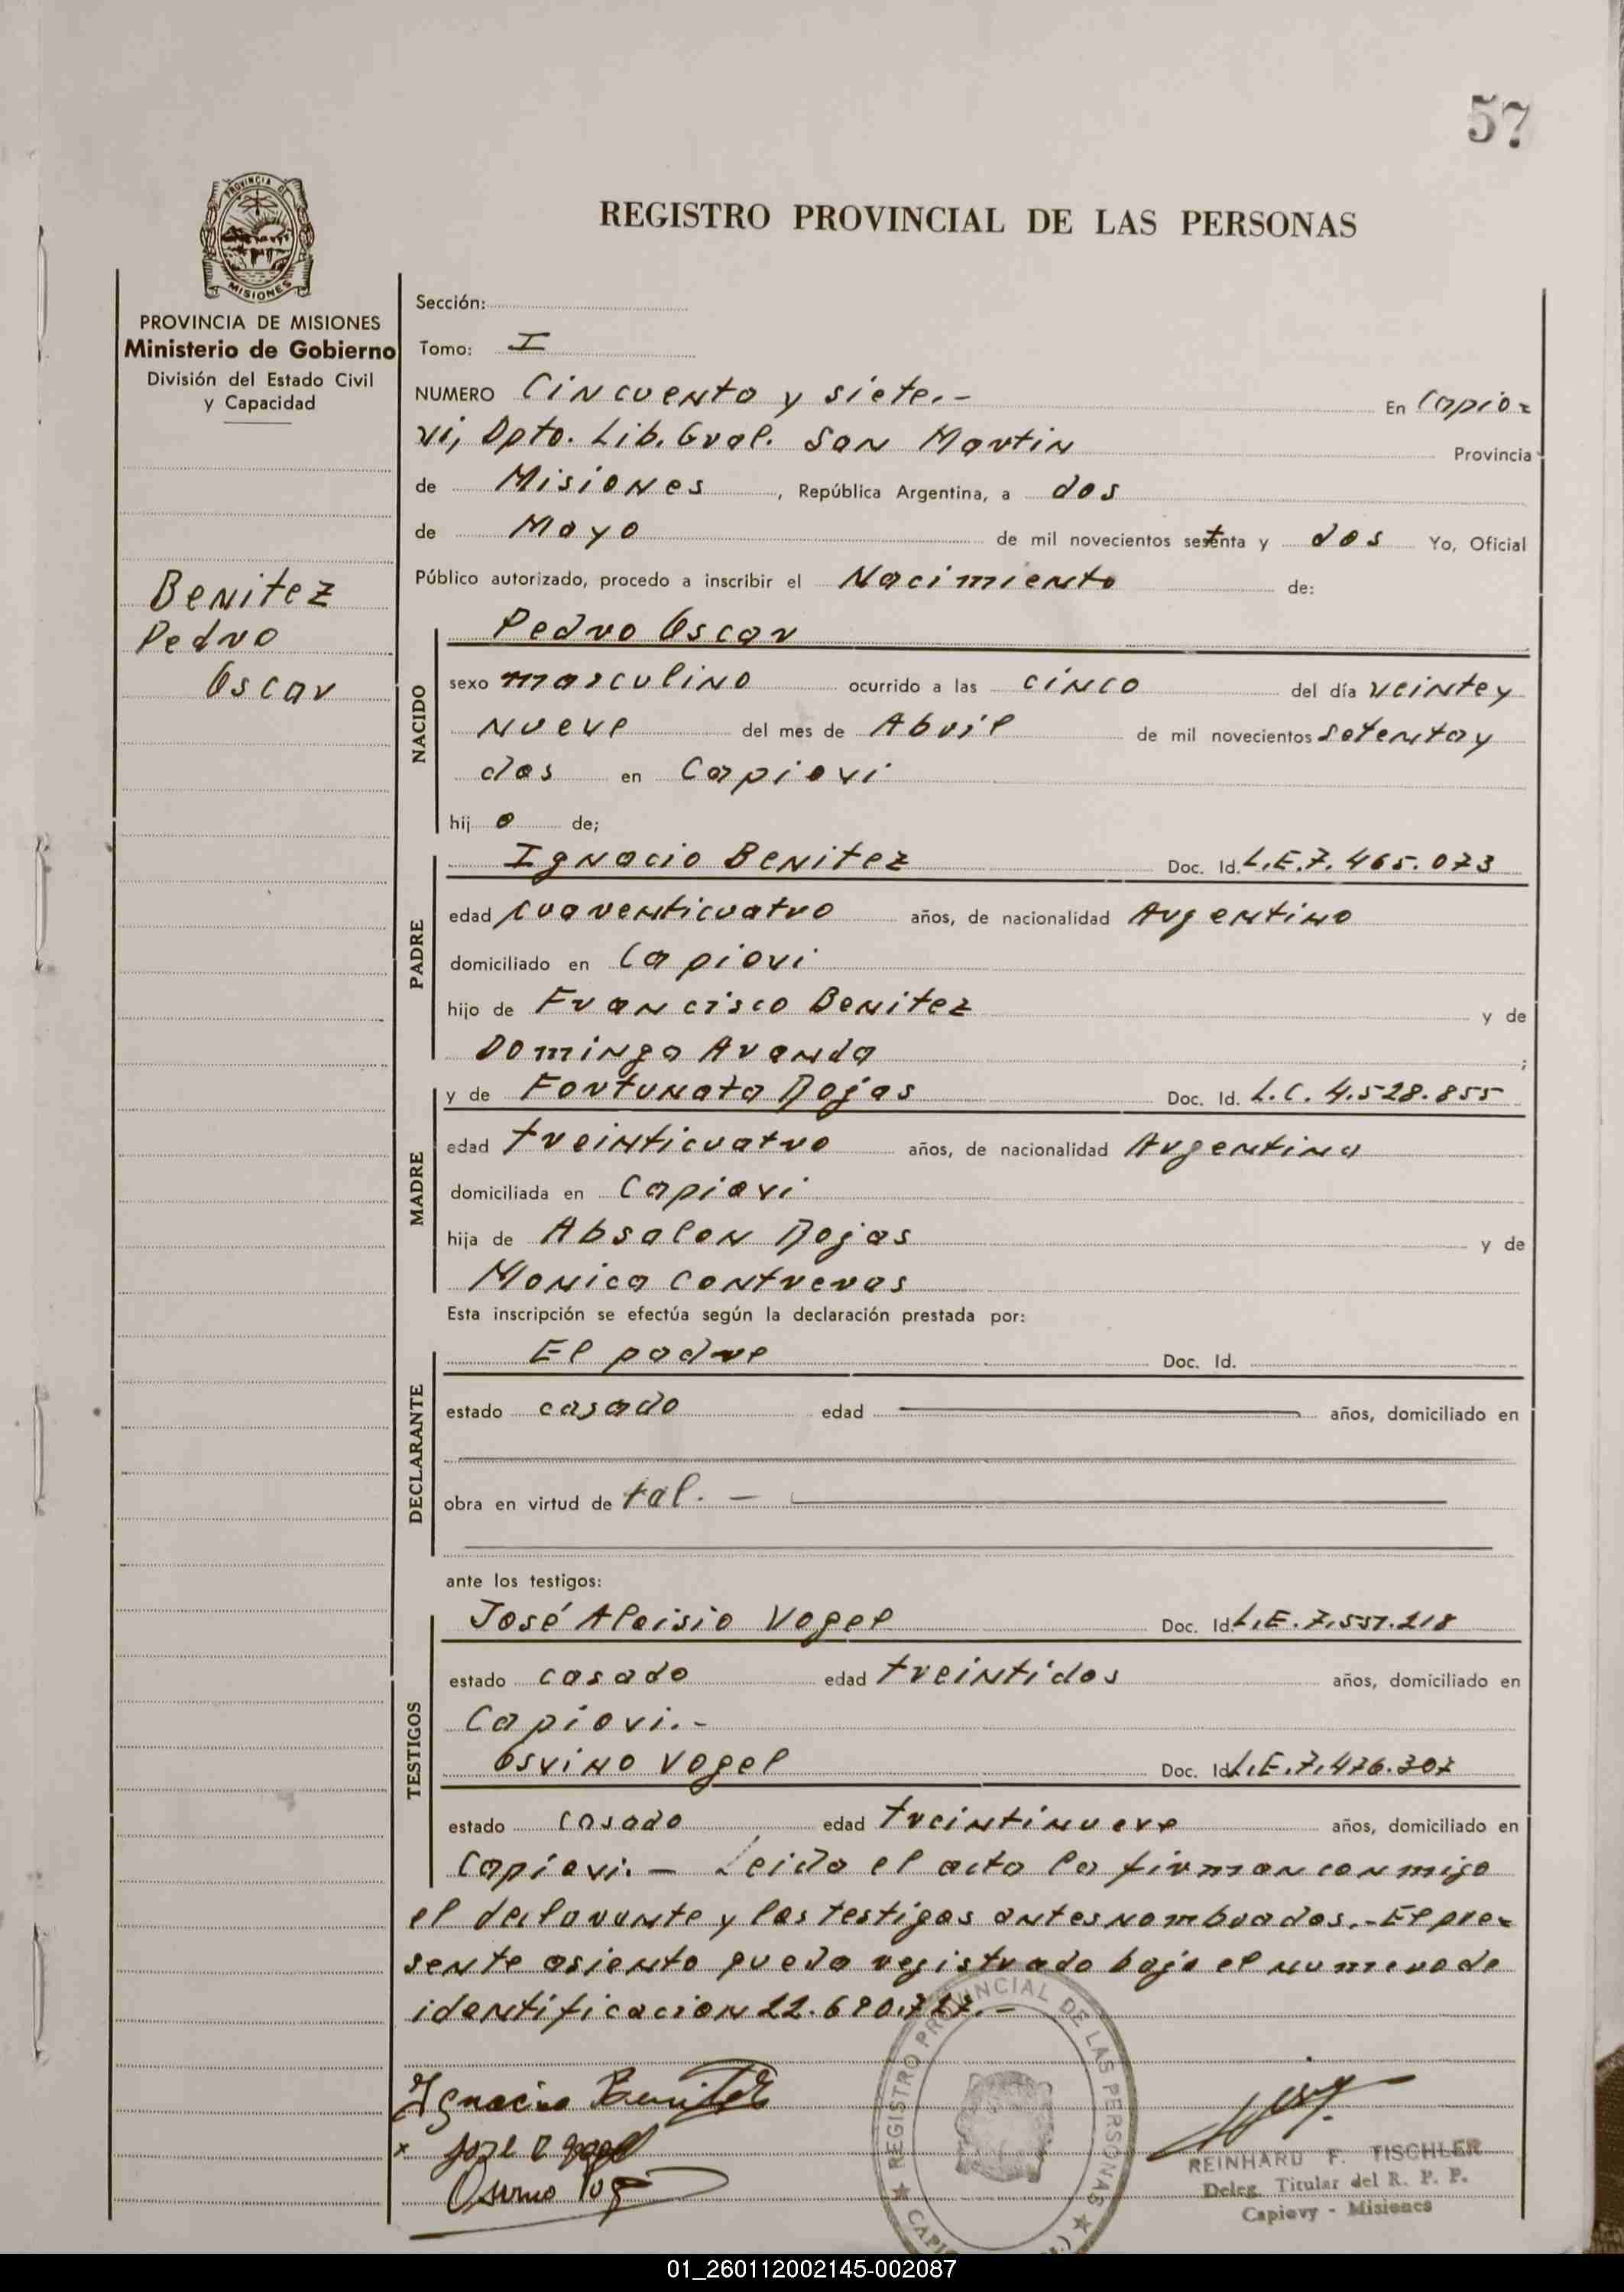 57
PROVINCIA DE
MISIONES
REGISTRO PROVINCIAL DE LAS PERSONAS
PROVINCIA DE MISIONES
Ministerio de Gobierno
División del Estado Civil
y Capacidad
Benitez
Pedro
Oscar
Sección:
Tomo: I
NUMERO Cincuenta y siete.- En Capio=
vi, Dpto. Lib. Gral. San Martin Provincia
de Misiones, República Argentina, a dos
de Mayo de mil novecientos setenta y dos Yo, Oficial
Público autorizado, procedo a inscribir el Nacimiento de:
NACIDO
Pedro Oscar
sexo masculino ocurrido a las cinco del día veinte y
nueve del mes de Abril de mil novecientos setenta y
dos en Capiovi
hij o de;
PADRE
Ignacio Benitez Doc. Id. L.E.7.465.073
edad cuarenticuatro años, de nacionalidad Argentino
domiciliado en Capiovi
hijo de Francisco Benitez y de
Dominga Aranda ;
MADRE
y de Fortunata Rojas Doc. Id. L.C. 4.528.855
edad treinticuatro años, de nacionalidad Argentina
domiciliada en Capiovi
hija de Absalon Rojas y de
Monica Contreras
Esta inscripción se efectúa según la declaración prestada por:
DECLARANTE
El padre Doc. Id.
estado casado edad años, domiciliado en
obra en virtud de tal. -
ante los testigos:
TESTIGOS
José Aloisio Vogel Doc. Id. L.E.7.551.218
estado casado edad treintidos años, domiciliado en
Capiovi.-
Osvino Vogel Doc. Id. L.E.7.476.307
estado casado edad treintinueve años, domiciliado en
Capiovi.- Leida el acta la firman conmigo
el declarante y los testigos antes nombrados.- El pre=
sente asiento queda registrado bajo el numero de
identificacion 22.680.727.-
Ignacio Benitez
x
Osvino Vog
REGISTRO PROVINCIAL DE LAS PERSONAS
REINHARD F. TISCHLER
Deleg. Titular del R. P. P.
Capiovy - Misiones
01_260112002145-002087